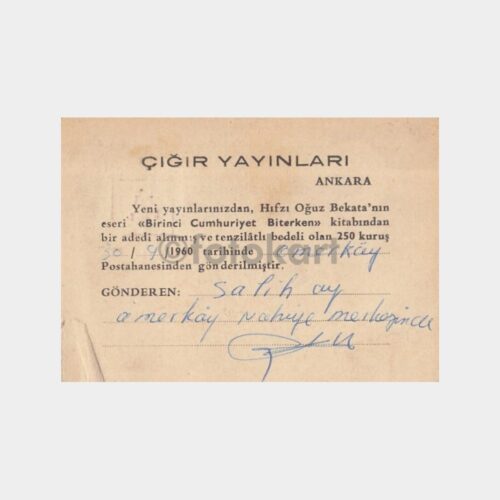 ÇIĞIR YAYINLARI
ANKARA
Yeni yayınlarınızdan, Hıfzı Oğuz Bekata'nın
eseri «Birinci Cumhuriyet Biterken» kitabından
bir adedi alınmış ve tenzilâtlı bedeli olan 250 kuruş
30 / 9 / 1960 tarihinde omerköy
Postahanesinden gönderilmiştir.
GÖNDEREN: Salih ay
omerköy Nahiye merkezinde
©fotokart